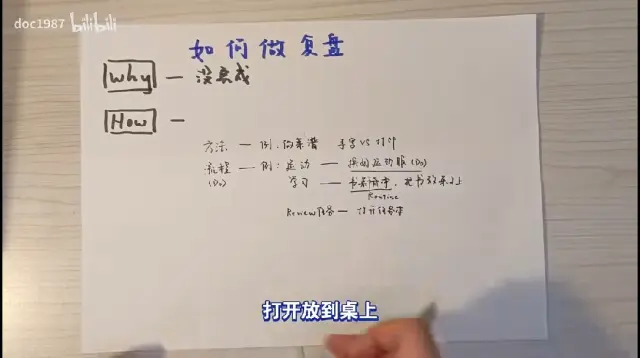 doc1987 bilibili
如何做复盘
Why — 没完成
How —
方法 — 例: 手写VS打印
流程 — 例: 运动 — 换好运动服(Do)
(Do) 学习 — 书桌清空, 把书放桌上
Routine
Review任务 — 打开任务本
打开放到桌上